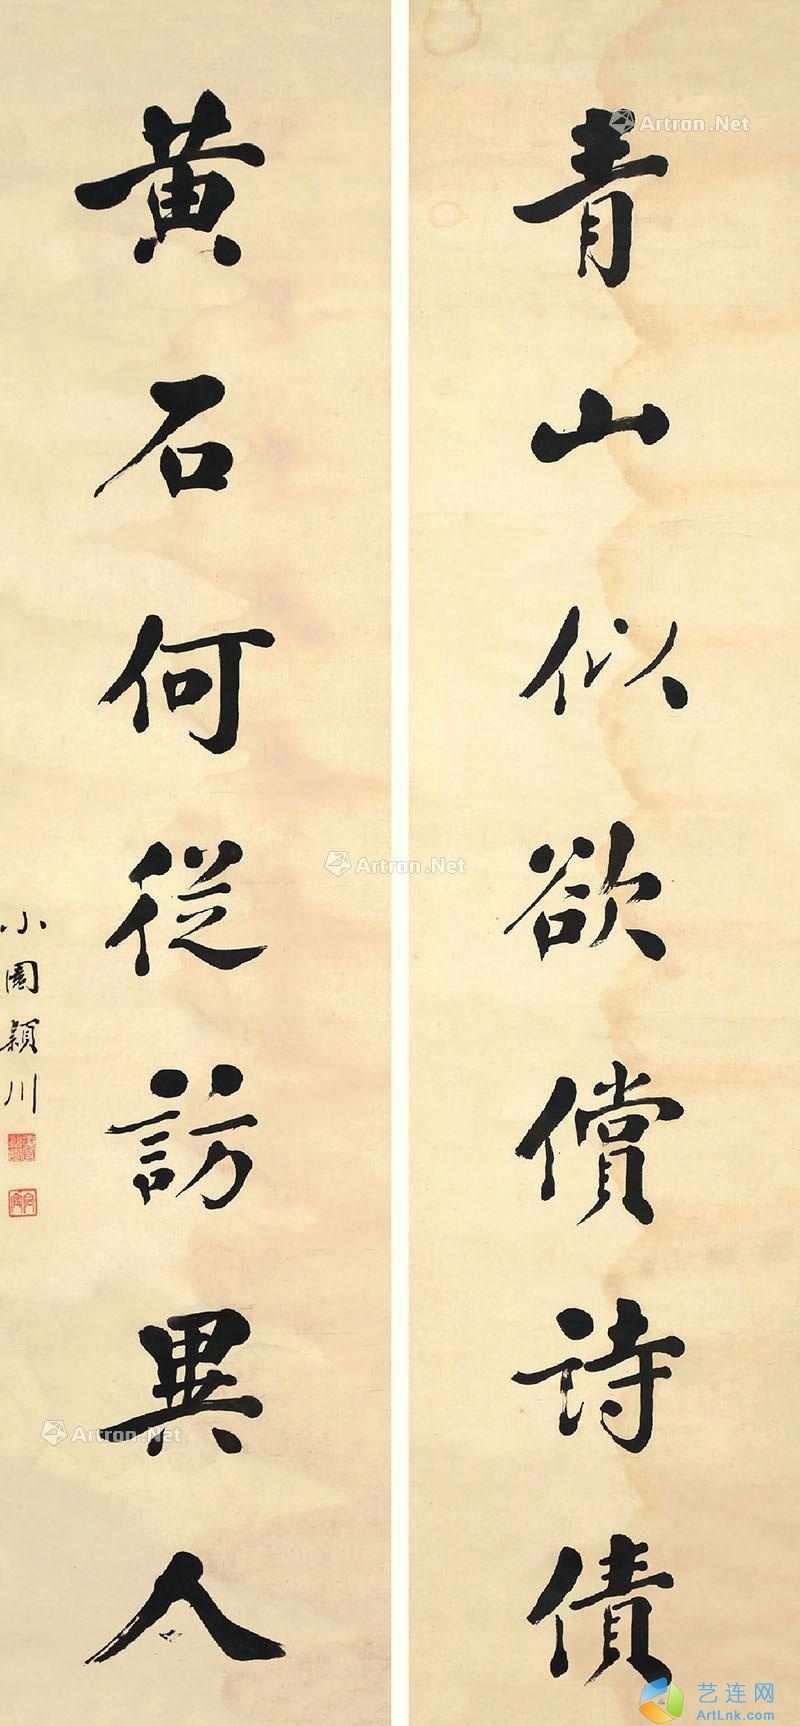 青山似欲償詩債
黃石何從訪異人
小園穎川
Artron.Net
Artron.Net
Artron.Net
艺连网
ArtLnk.com